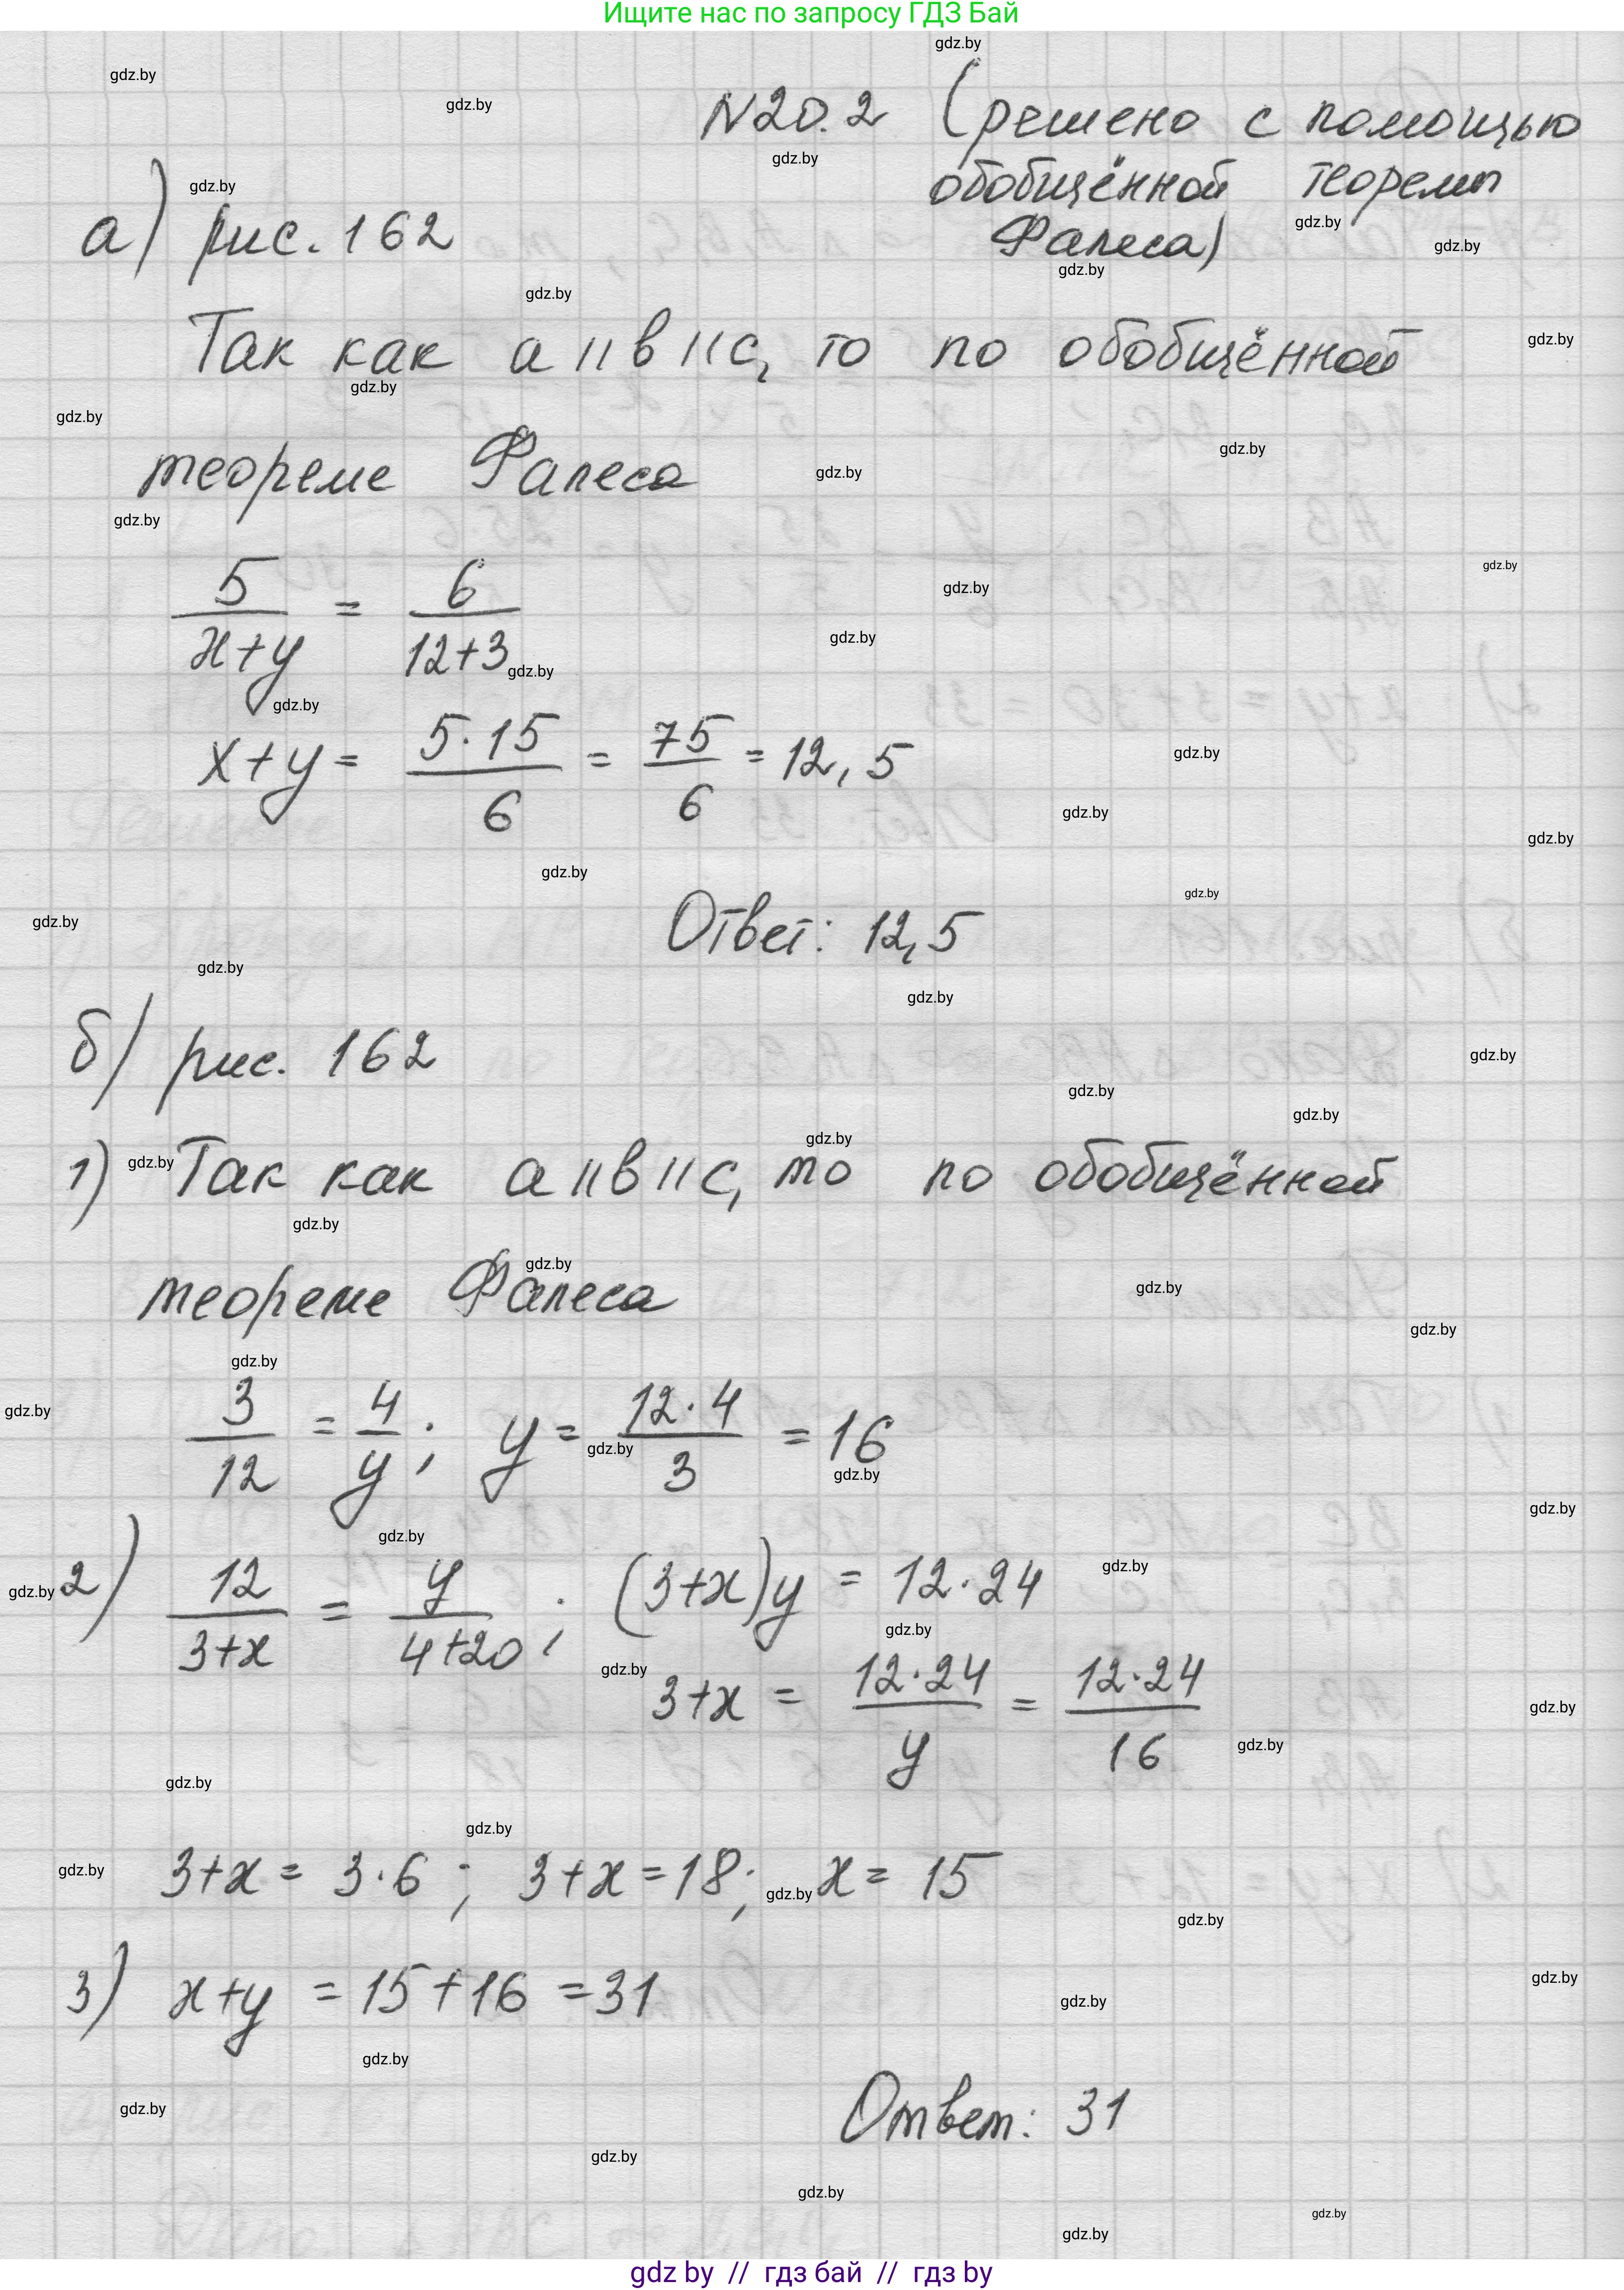 Ищите нас по запросу ГДЗ Бай
N20.2 (решено с помощью
обобщённой теоремы
Фалеса)
а) рис. 162
Так как a || b || c, то по обобщённой
теореме Фалеса
5/(x+y) = 6/(12+3)
x+y = (5·15)/6 = 75/6 = 12,5
Ответ: 12,5
б) рис. 162
1) Так как a || b || c, то по обобщённой
теореме Фалеса
3/12 = 4/y; y = (12·4)/3 = 16
2) 12/(3+x) = y/(4+20); (3+x)y = 12·24
3+x = (12·24)/y = (12·24)/16
3+x = 3·6; 3+x = 18; x = 15
3) x+y = 15+16 = 31
Ответ: 31
gdz by // гдз бай // гдз by